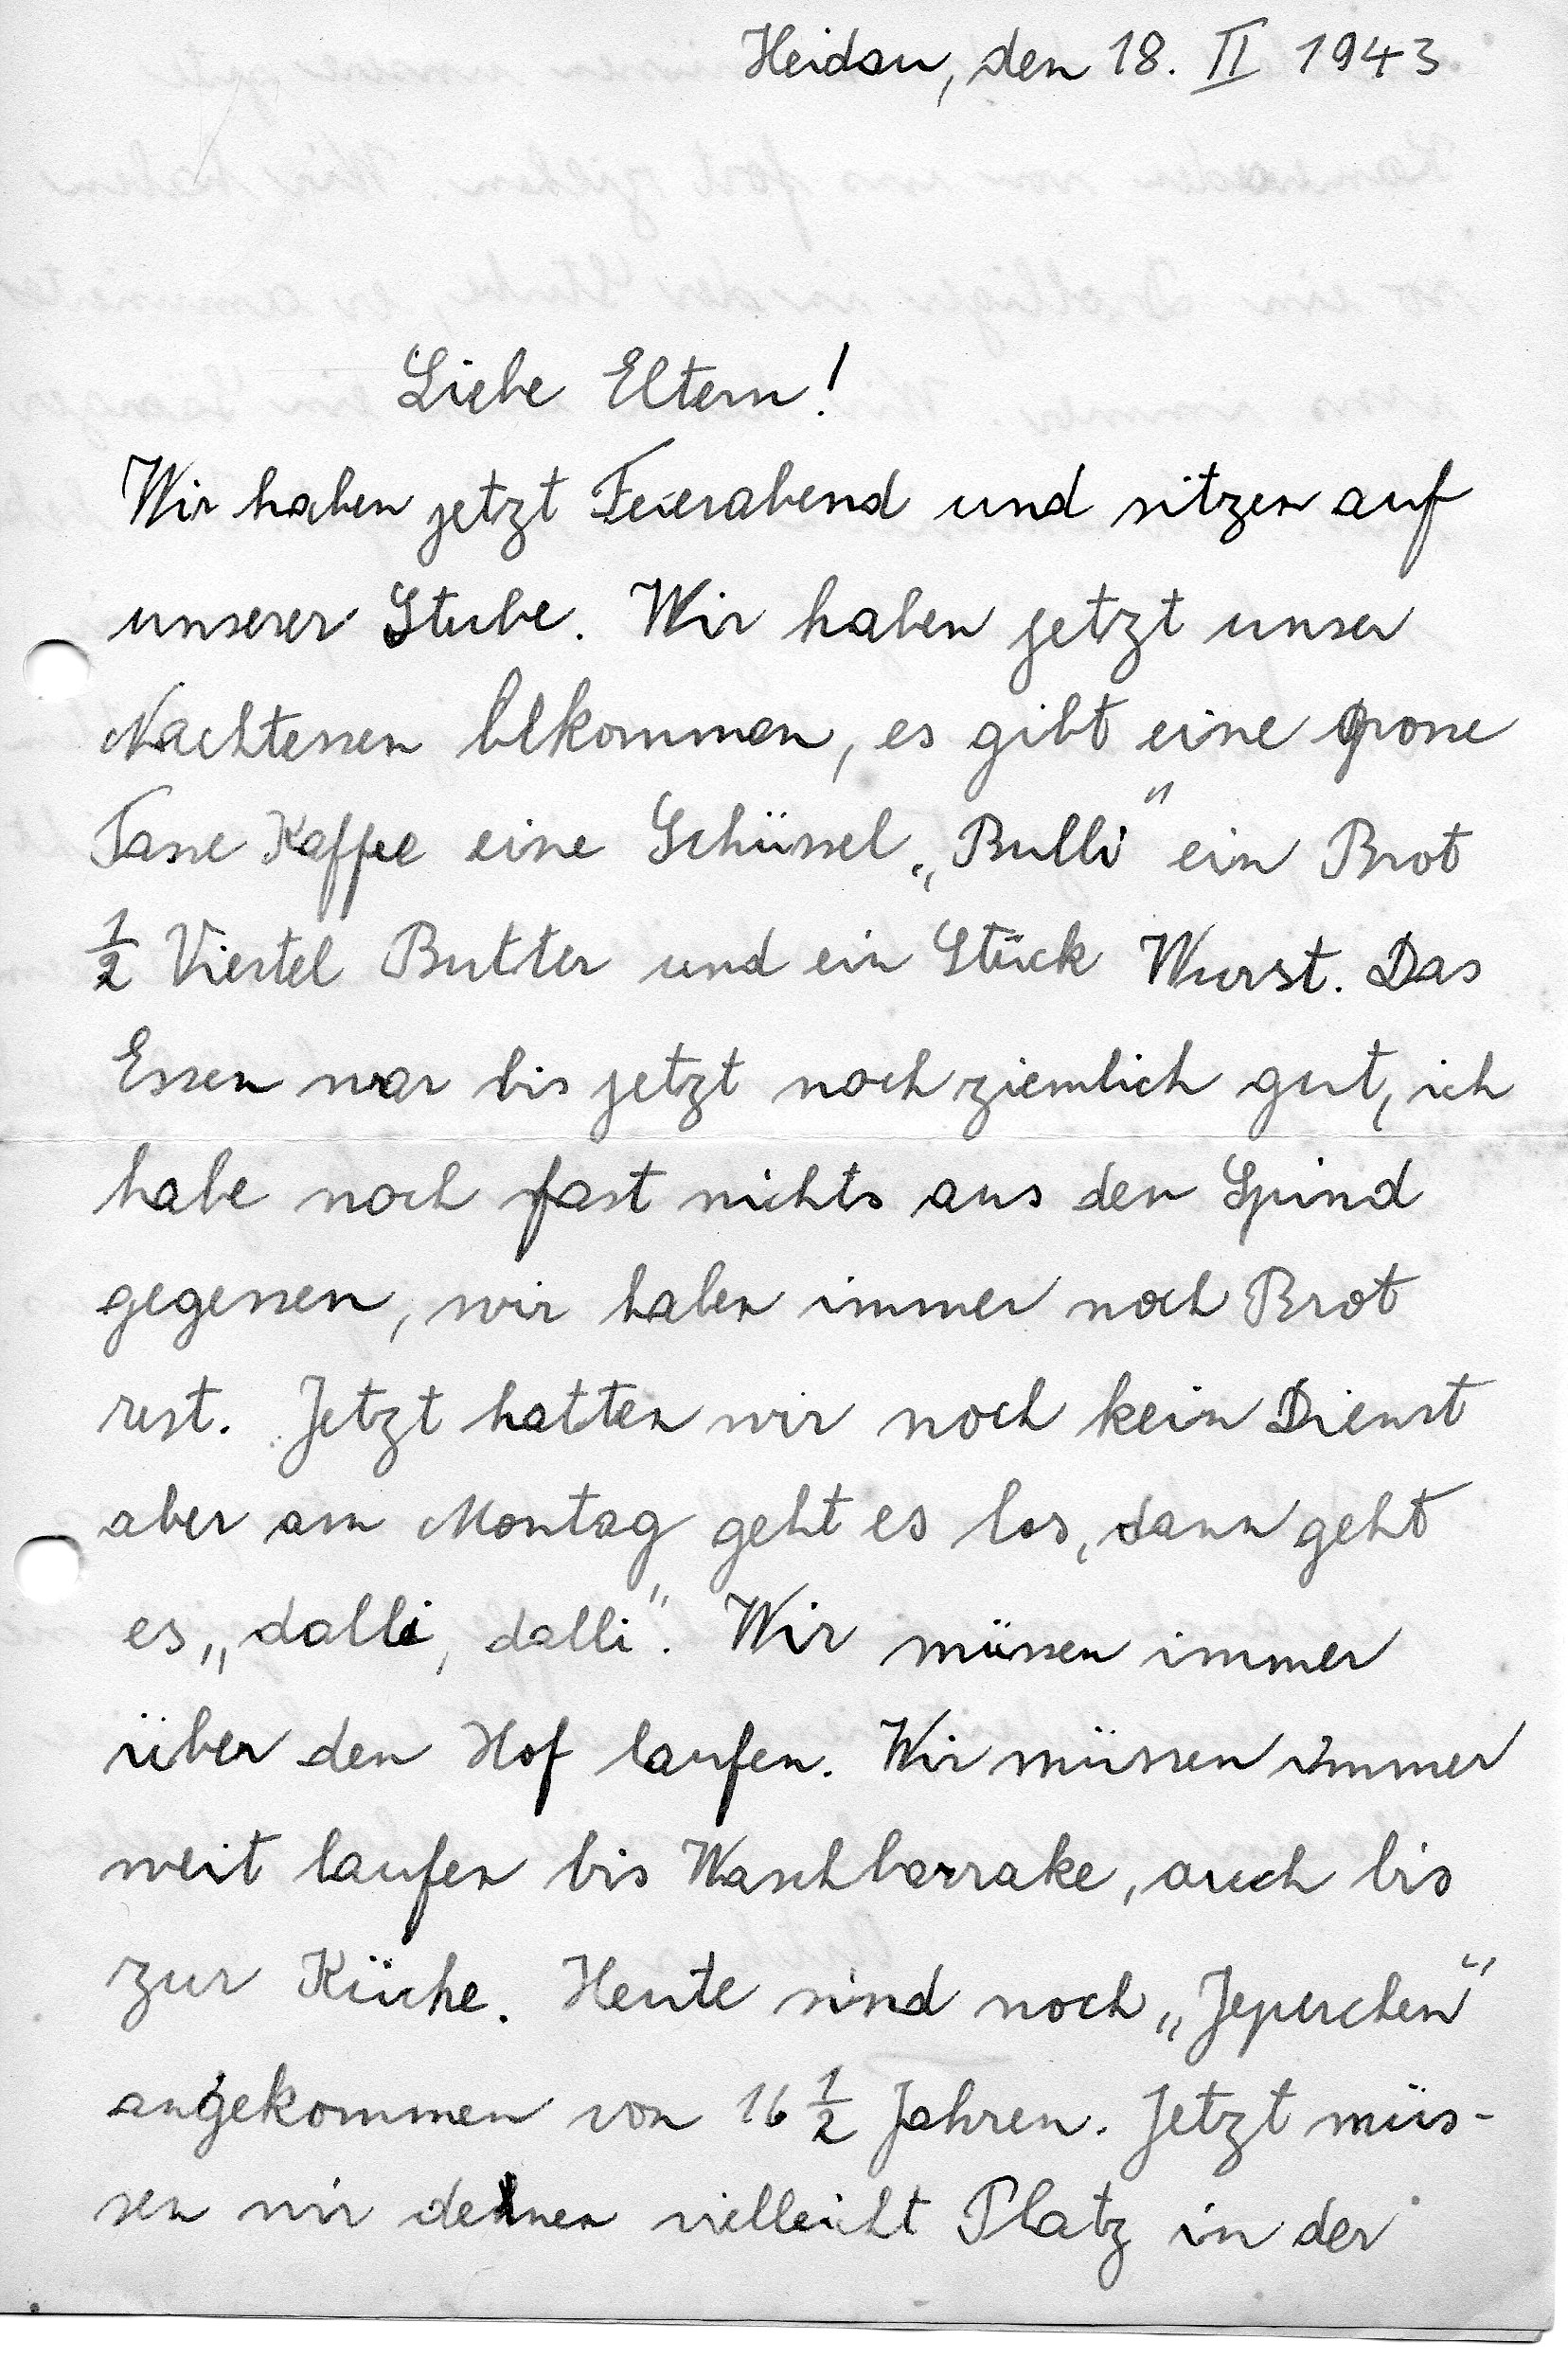 Heidau, den 18. II 1943.
Liebe Eltern!
Wir haben jetzt Feierabend und sitzen auf
unserer Stube. Wir haben jetzt unser
Nachtessen bekommen, es gibt eine grosse
Tasse Kaffee eine Schüssel „Bulli" ein Brot
½ Viertel Butter und ein Stück Wurst. Das
Essen war bis jetzt noch ziemlich gut, ich
habe noch fast nichts aus den Spind
gegessen, wir haben immer noch Brot
rest. Jetzt hatten wir noch kein Dienst
aber am Montag geht es los, dann geht
es „dalli, dalli". Wir müssen immer
über den Hof laufen. Wir müssen immer
weit laufen bis Waschbarrake, auch bis
zur Küche. Heute sind noch „Jeperchen"
angekommen von 16 ½ Jahren. Jetzt müs-
sen wir denen vielleicht Platz in der